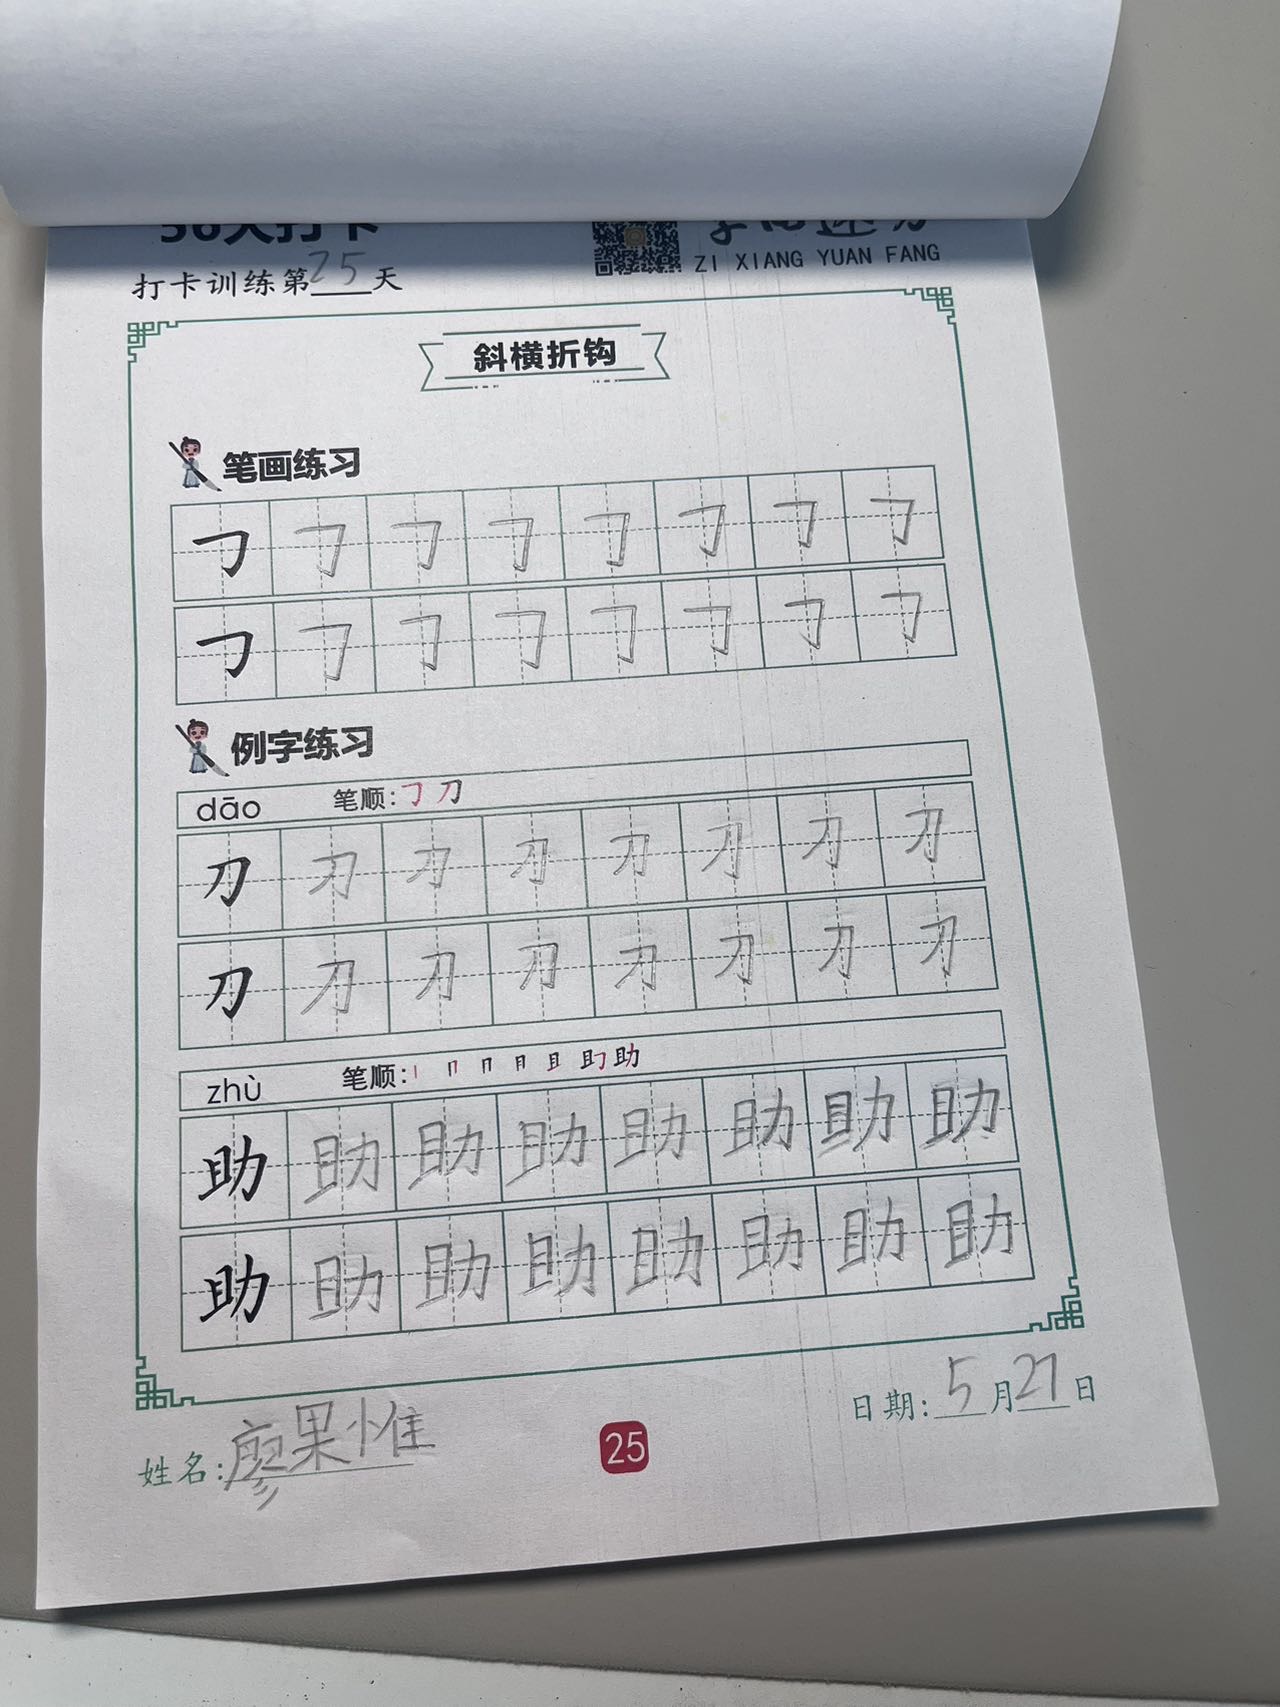 打卡训练第25天
ZI XIANG YUAN FANG
斜横折钩
笔画练习
㇆ ㇆ ㇆ ㇆ ㇆ ㇆ ㇆ ㇆
㇆ ㇆ ㇆ ㇆ ㇆ ㇆ ㇆ ㇆
例字练习
dāo 笔顺:㇆刀
刀 刀 刀 刀 刀 刀 刀 刀
刀 刀 刀 刀 刀 刀 刀 刀
zhù 笔顺:
助 助 助 助 助 助 助 助
助 助 助 助 助 助 助 助
日期:5月27日
姓名:廖果惟
25